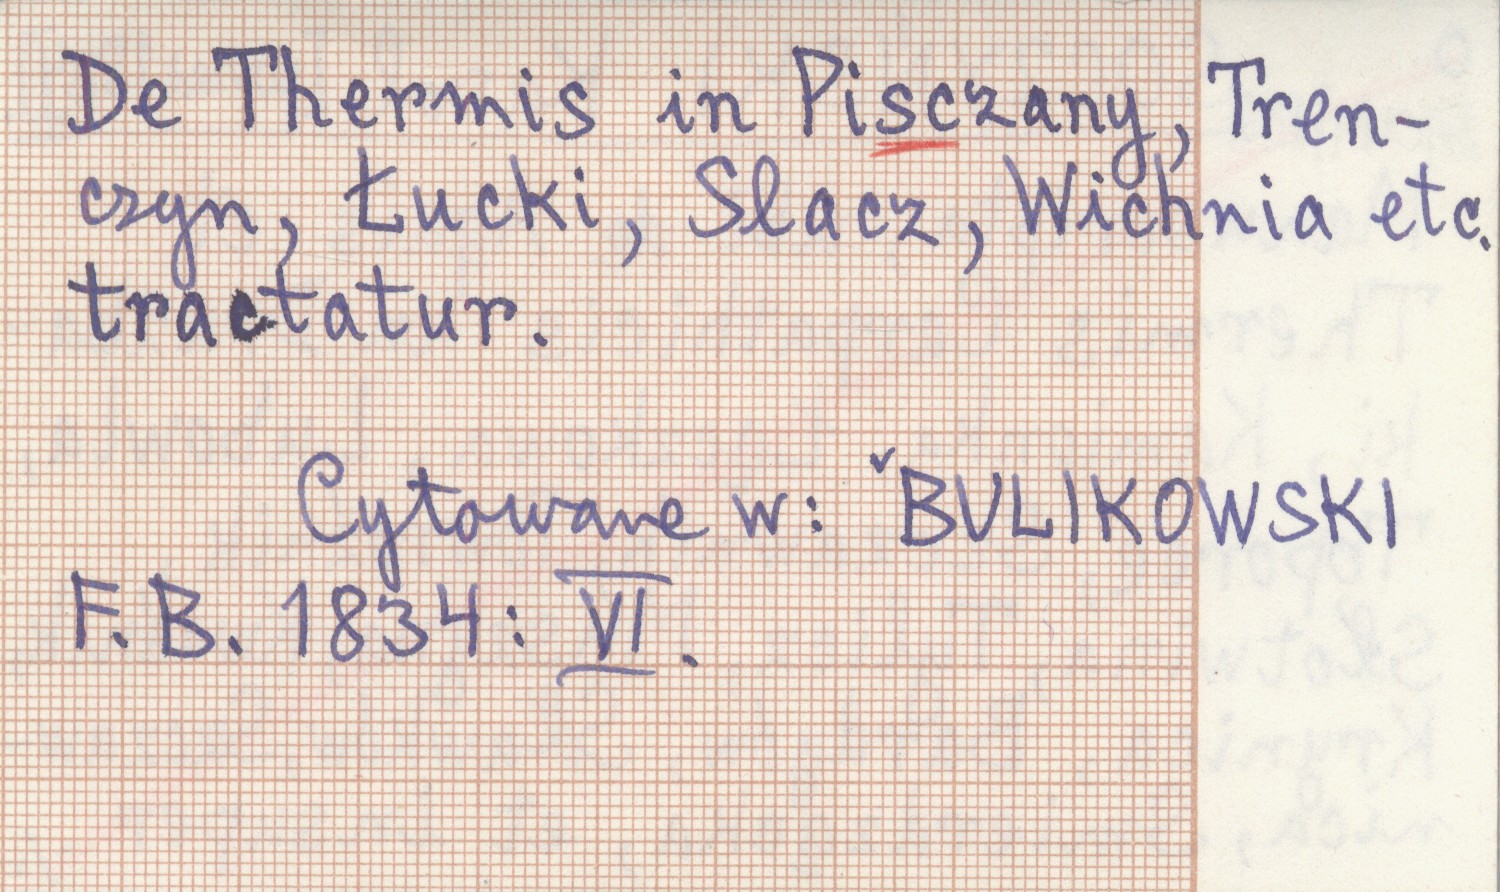 De Thermis in Pisczany, Tren-
czyn, Łucki, Slacz, Wichnia etc.
tractatur.
Cytowane w: ˇBULIKOWSKI
F. B. 1834: VI.